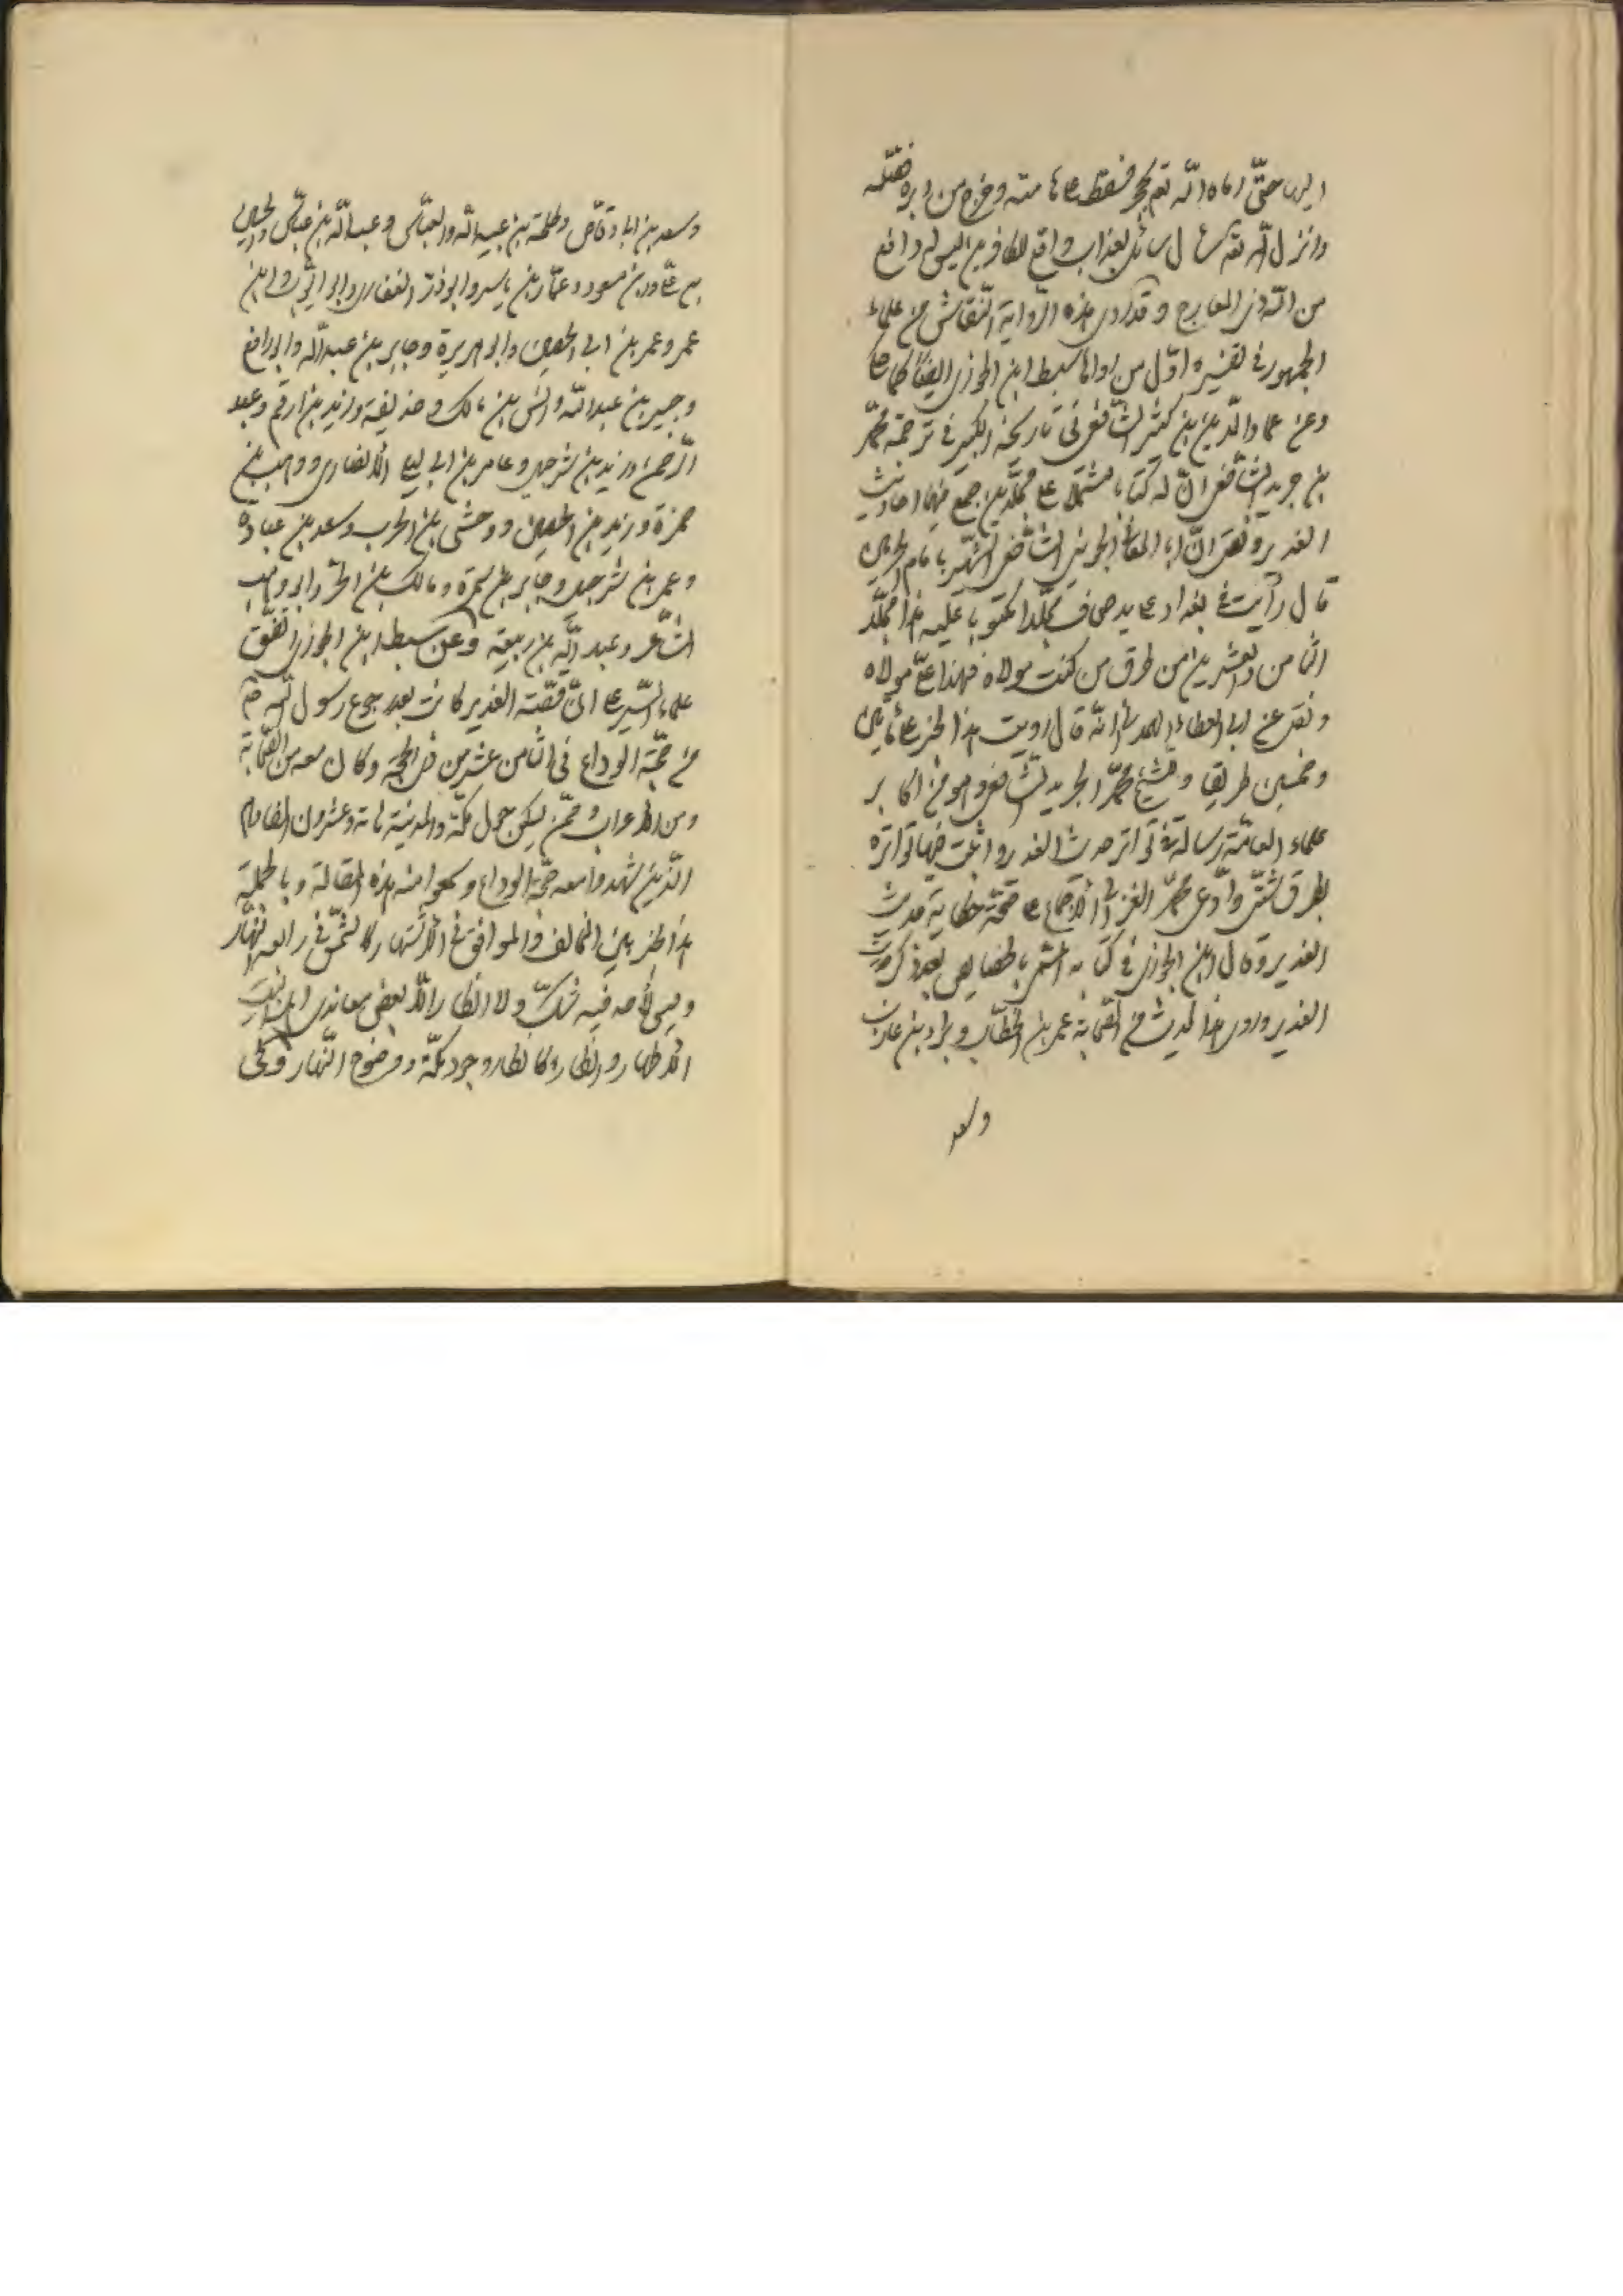 اليها حتّى رماه اللّه تعم بحجر فسقط على هامته وخرج من دبره فقتله
وانزل اللّه تعم سئل سائل بعذاب واقع للكافرين ليس له دافع
من اللّه ذى المعارج وقد روى هذه الرواية النّقاش من علماء
الجمهور فى تفسيره واوّل من سبط ابن الجوزى ايضا
وعن عماد الدّين بن كثير الشّافعى فى تاريخه الكبير فى ترجمة محمّد
بن جرير الشّافعى انّ له كتابا مشتملا على مجلّدين جمع فيها احاديث
الغدير ونقل انّ ابا المعالى الجوينى الشّافعى بامام الحرمين
قال رأيت فى بغداد على يد صحاف مجلّدا مكتوبا عليه هذا مجلّد
الثامن والعشرين من طرق من كنت مولاه فهذا علىّ مولاه
ونقل عن ابى العطاء الهمدانى انّه قال رويت هذا الخبر على مأتين
وخمسين طريقا والشيخ محمّد الجريد الشّافعى وهو من اكابر
علماء العامّة رسالة فى تواتر حديث الغدير واثبت فيها تواتره
بطرق شتّى وادّعى محمّد الغزالى الاجماع على صحّة خطابة حديث
الغدير وقال ابن الجوزى فى كتابه بالخصايص بعد ذكر حديث
الغدير وروى هذا الحديث من الصّحابة عمر بن الخطّاب وبراء بن عازب
وسعد
وسعد بن ابا وقّاص وطلحة بن عبيد اللّه والعبّاس وعبد اللّه بن عبّاس والحسين
بن علىّ وابن مسعود وعمّار بن ياسر وابوذرّ الغفارى وابو ايّوب وابن
عمر وعمر بن ابى الحصين وابو هريرة وجابر بن عبد اللّه وابو رافع
وجبير بن عبد اللّه وانس بن مالك وحذيفة وزيد بن ارقم وعبد
الرّحمن وزيد بن شرحبيل وعامر بن ابى ليلى الأنصارى ووهب بن
حمزة وزيد بن الحصين ووحشى بن الحرب وسعد بن عبادة
وعمر بن شرحبيل وجابر بن سمرة ومالك بن الحرّ وابو وهب
الشّاعر وعبد اللّه بن ربيعة وعن سبط ابن الجوزى اتّفق
علماء السّير على انّ قصّة الغدير كانت بعد رجوع رسول اللّه ص
من حجّة الوداع فى الثامن عشر من ذى الحجّة وكان معه من الصّحابة
ومن الاعراب وممّن يسكن حول مكّة والمدينة مائة وعشرون الفا وهم
الّذين شهدوا معه حجّة الوداع وسمعوا منه هذه المقالة وبالجملة
هذا الخبر بين المخالف والموافق فى الأشتهار كالشّمس فى رابعة النّهار
وليس لأحد فيه شكّ ولا انكار الّا بعض معاندى اهل البيت
الأطهار وانكاره كانكار وجود مكّة ووضوح النّهار